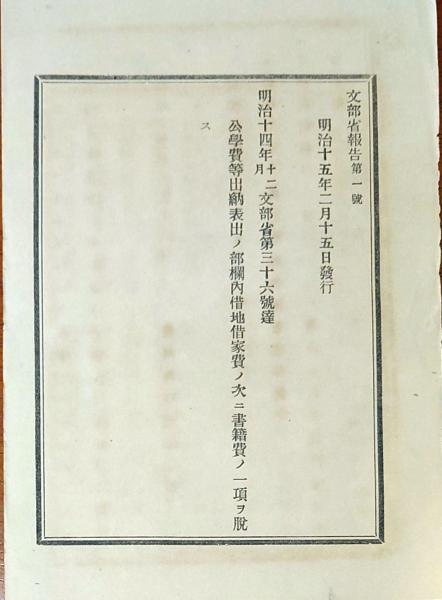 文部省報告第一號
明治十五年二月十五日發行
明治十四年十二月文部省第三十六號達
公學費等出納表出ノ部欄內借地借家費ノ次ニ書籍費ノ一項ヲ脫
ス